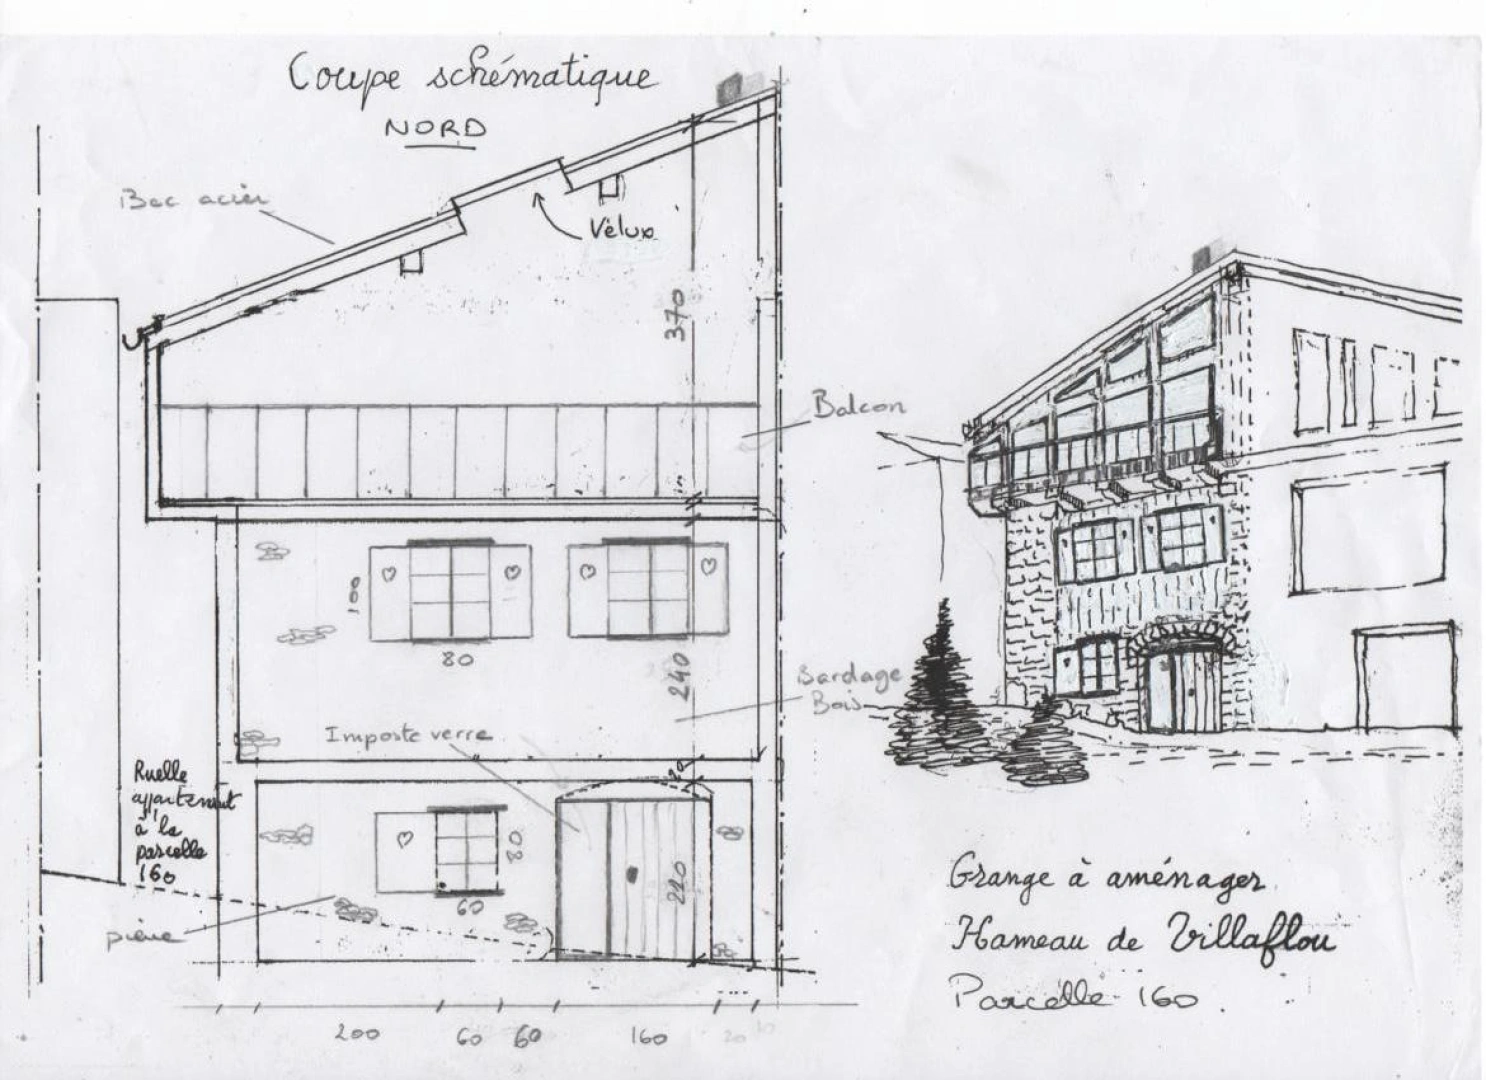 Coupe schématique
NORD
Bac acier
Vélux
370
Balcon
100
80
240
Bardage
Bois
Imposte verre
20
Ruelle
appartenant
à la
parcelle
160
80
210
60
pierre
200 60 60 160 20
Grange à aménager
Hameau de Villaflou
Parcelle 160